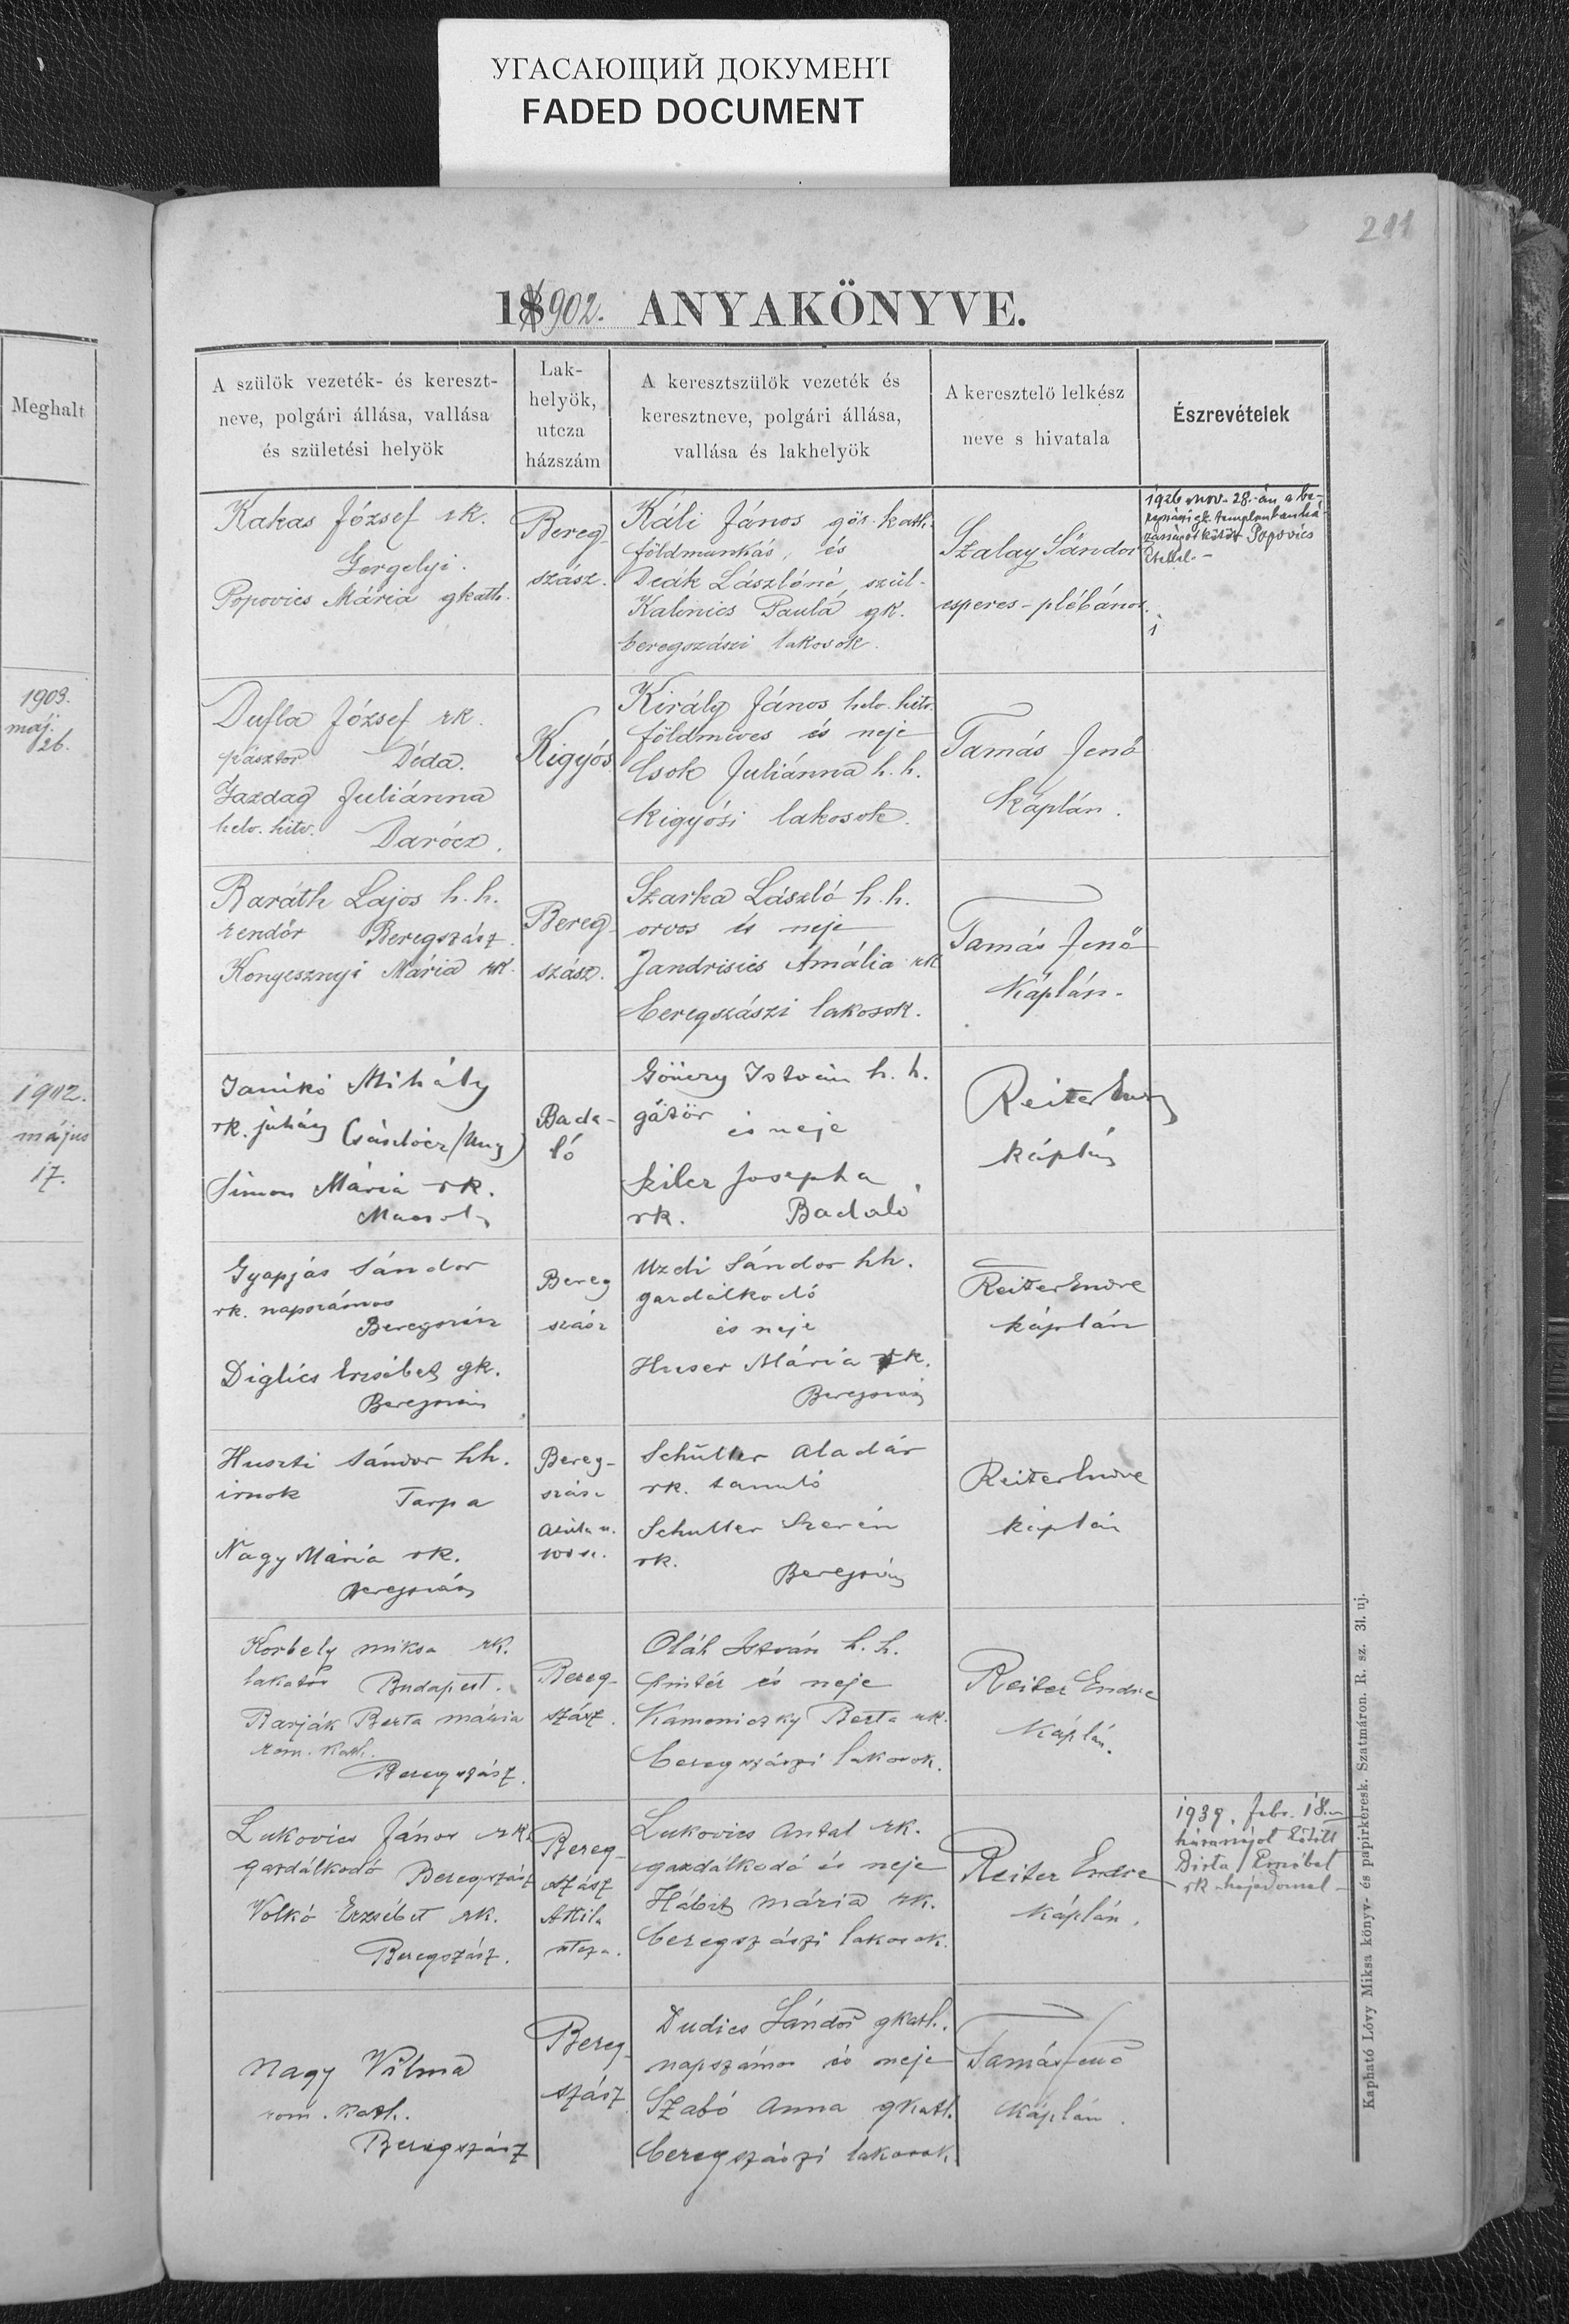 УГАСАЮЩИЙ ДОКУМЕНТ
FADED DOCUMENT
211
18902. ANYAKÖNYVE.
Meghalt
1903.
máj.
26.
1902.
május
17.
A szülök vezeték- és kereszt-
neve, polgári állása, vallása
és születési helyök
Lak-
helyök,
utcza
házszám
A keresztszülök vezeték és
keresztneve, polgári állása,
vallása és lakhelyök
A keresztelő lelkész
neve s hivatala
Észrevételek
Kakas József rk.
Gergelyi.
Popovics Mária gkath.
Bereg-
szász.
Káli János gör. kath.
földmunkás, és
Deák Lászlóné, szül.
Kalinics Paula gk.
beregszászi lakosok.
Szalay Sándor
esperes-plébános.
1926 nov. 28.-án a be-
regszászi gk. templomban há-
zasságot kötött Popovics
Dufla József rk.
pásztor Déda.
Gazdag Juliánna
helv. hitv. Darócz.
Kigyós
Király János helv. hitv.
földmíves és neje
Csok Juliánna h. h.
kigyósi lakosok.
Tamás Jenő
káplán.
Baráth Lajos h. h.
rendőr Beregszász.
Konyesznyi Mária rk.
Bereg-
szász.
Szarka László h. h.
orvos és neje
Jandrisics Amália rk
beregszászi lakosok.
Tamás Jenő
káplán.
Janikó Mihály
rk. juhász Császlócz (Ung)
Simon Mária rk.
Bada-
ló
Gönczy István h. h.
gátőr és neje
Josepha
rk. Badaló
Reiter Endre
káplán
Gyapjás Sándor
rk. napszámos
Beregszász
Diglics Erzsébet gk.
Beregszász
Bereg
szász
Uzdi Sándor hh.
gazdálkodó
és neje
Huser Mária rk.
Beregszász
Reiter Endre
káplán
Huszti Sándor hh.
irnok Tarpa
Nagy Mária rk.
Beregszász
Bereg-
szász
Schütter Aladár
rk. tanuló
Schutter Szerén
rk.
Beregszász
Reiter Endre
káplán
Korbely miksa rk.
lakatos Budapest.
Barják Berta mária
rom. kath.
Beregszász.
Bereg-
szász.
Oláh István h. h.
pintér és neje
Kameniczky Berta rk.
beregszászi lakosok.
Reiter Endre
káplán.
Lukovics János rk.
gazdálkodó Beregszász
Volkó Erzsébet rk.
Beregszász.
Bereg-
szász
Attila
utcza.
Lukovics Antal rk.
gazdálkodó és neje
Hábit mária rk.
beregszászi lakosok.
Reiter Endre
káplán.
1939. febr. 18.
házasságot kötött
Erzsébet
rk. hajadonnal
Nagy Vilma
rom. kath.
Beregszász
Bereg-
szász
Dudics Sándor gkath.
napszámos és neje
Szabó Anna gkath.
beregszászi lakosok.
Tamás Jenő
káplán.
Kapható Lővy Miksa könyv- és papirkeresk. Szatmáron. R. sz. 31. uj.